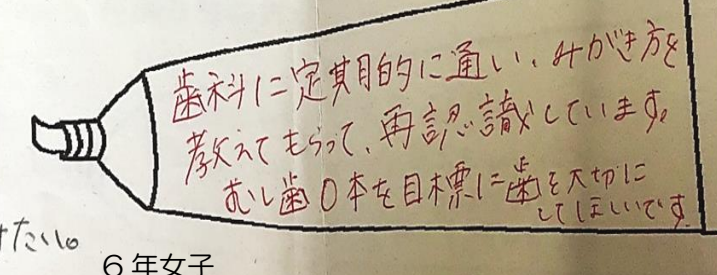 歯科に定期的に通い、みがき方を
教えてもらって、再認識しています。
むし歯0本を目標に歯を大切に
してほしいです。
けたい。
6年女子